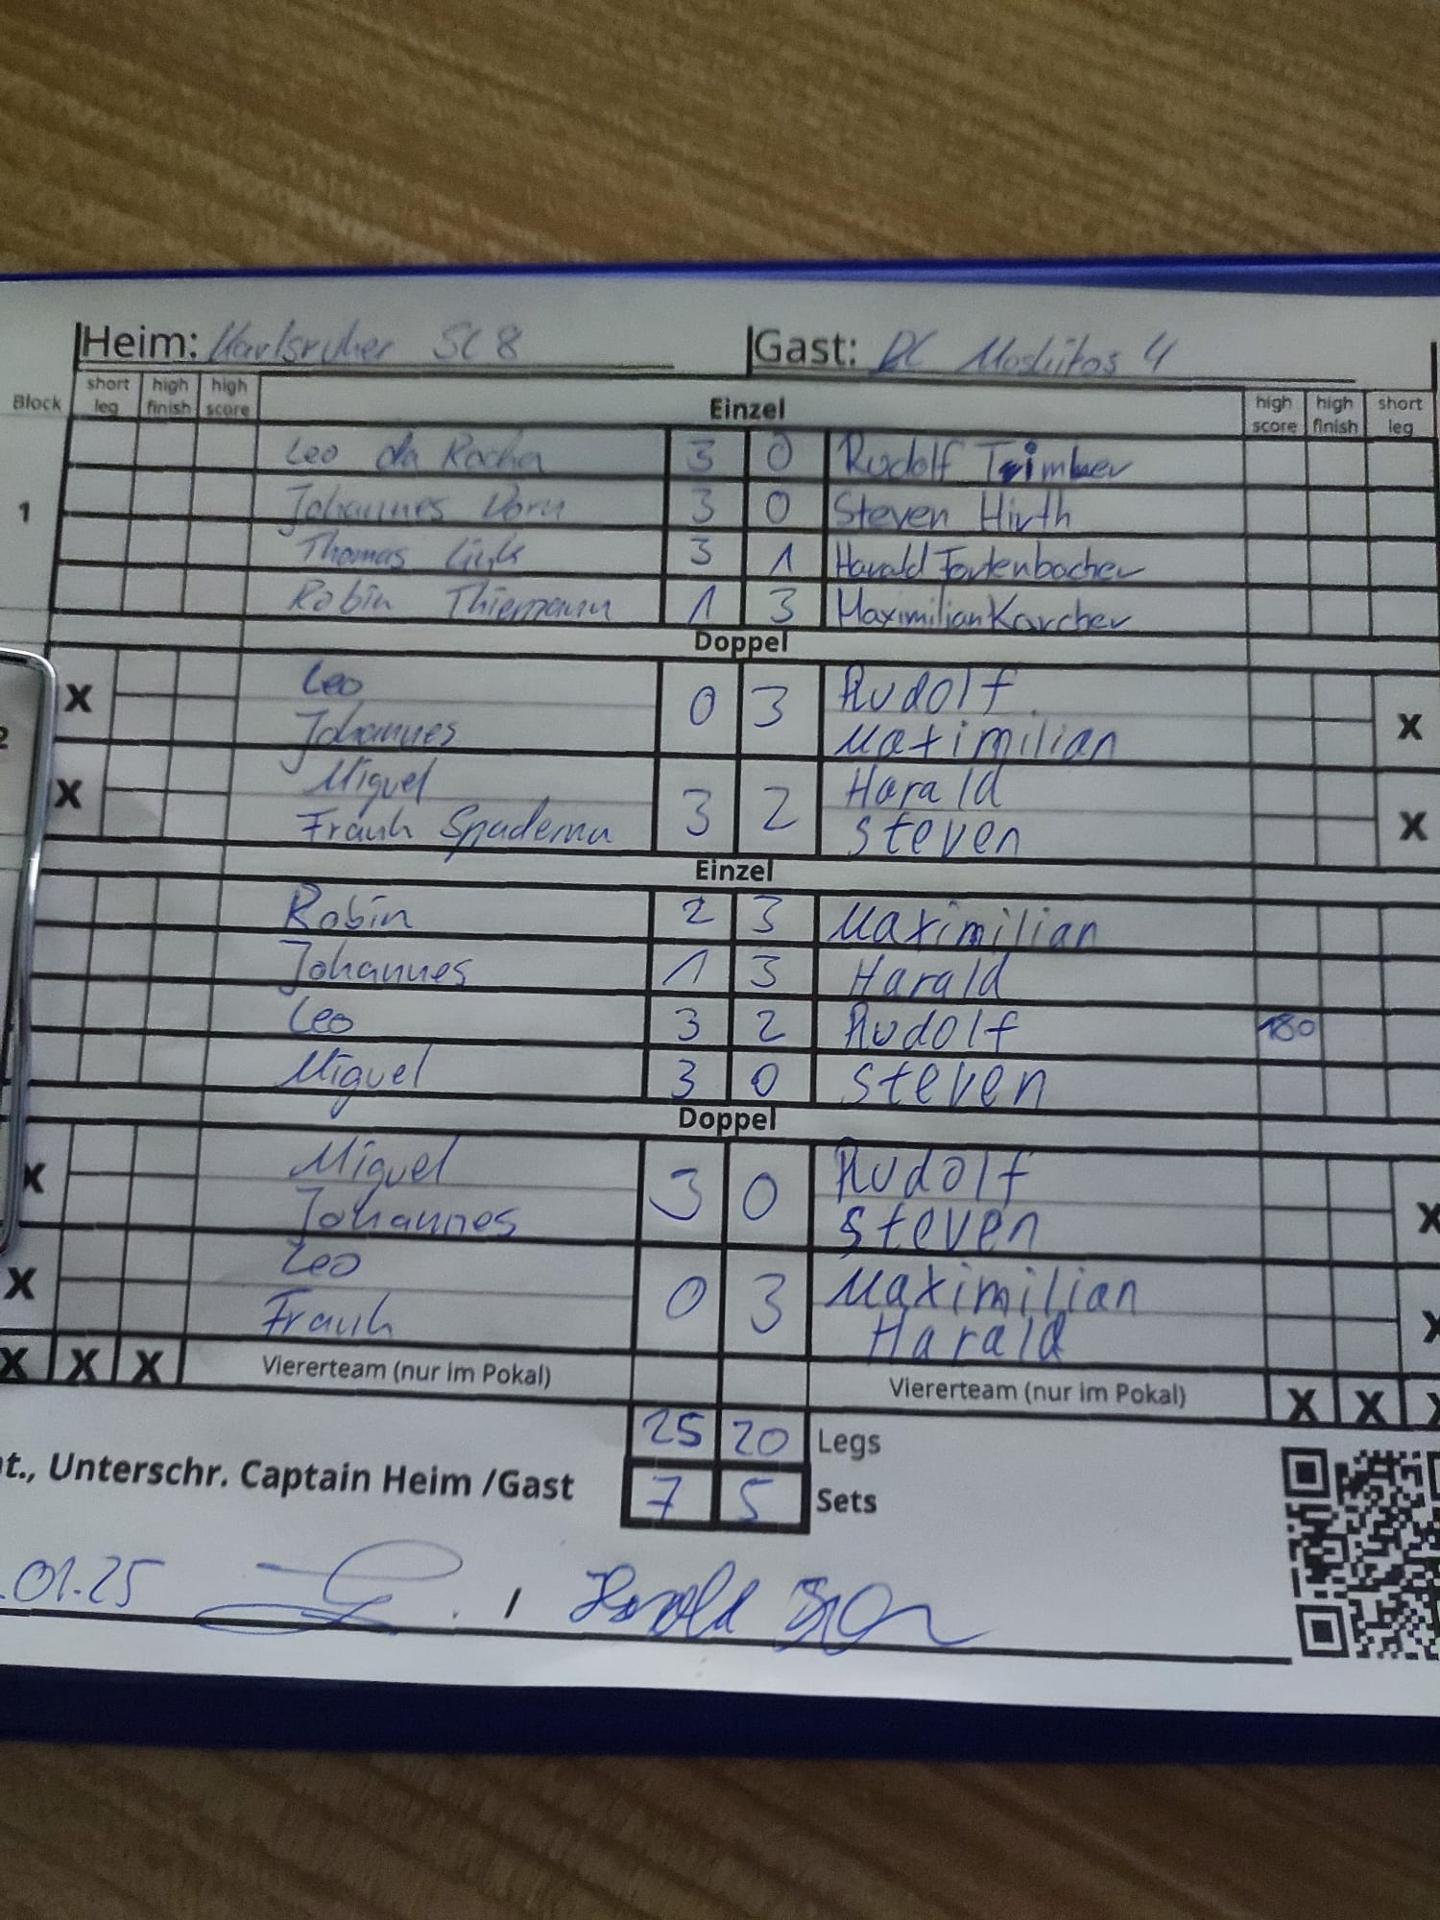 Heim: Karlsruher SC 8 Gast: DC Moskitos 4
Block short leg high finish high score Einzel high score high finish short leg
Leo da Rocha 3 0 Rudolf Trimber
1 Johannes Dorn 3 0 Steven Hirth
Thomas 3 1 Harald Fortenbacher
Robin Thiemann 1 3 Maximilian Karcher
Doppel
X Leo 0 3 Rudolf X
Johannes Maximilian
2
X Miguel 3 2 Harald X
Frank Steven
Einzel
Robin 2 3 Maximilian
Johannes 1 3 Harald
Leo 3 2 Rudolf 180
Miguel 3 0 Steven
Doppel
X Miguel 3 0 Rudolf X
Johannes Steven
X Leo 0 3 Maximilian X
Frank Harald
X X X Viererteam (nur im Pokal) Viererteam (nur im Pokal) X X X
25 20 Legs
t., Unterschr. Captain Heim /Gast 7 5 Sets
.01.25 / Harald